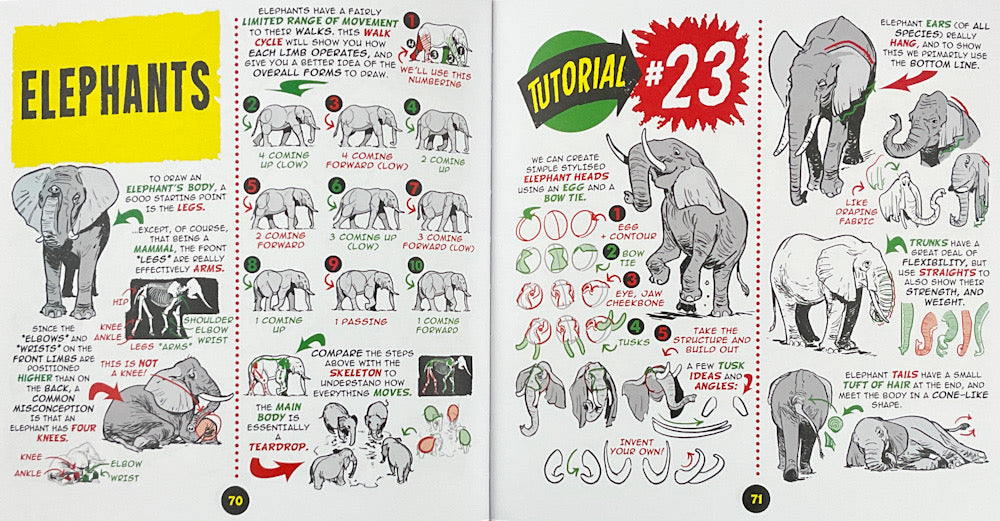 ELEPHANTS
TO DRAW AN
ELEPHANT'S BODY, A
GOOD STARTING POINT
IS THE LEGS.
...EXCEPT, OF COURSE,
THAT BEING A
MAMMAL, THE FRONT
"LEGS" ARE REALLY
EFFECTIVELY ARMS.
HIP
KNEE
ANKLE
SHOULDER
ELBOW
WRIST
LEGS "ARMS"
SINCE THE
"ELBOWS" AND
"WRISTS" ON THE
FRONT LIMBS ARE
POSITIONED
HIGHER THAN ON
THE BACK, A
COMMON
MISCONCEPTION
IS THAT AN
ELEPHANT HAS FOUR
KNEES.
THIS IS NOT
A KNEE!
KNEE
ANKLE
ELBOW
WRIST
ELEPHANTS HAVE A FAIRLY
LIMITED RANGE OF MOVEMENT
TO THEIR WALKS. THIS WALK
CYCLE WILL SHOW YOU HOW
EACH LIMB OPERATES, AND
GIVE YOU A BETTER IDEA OF THE
OVERALL FORMS TO DRAW.
1
WE'LL USE THIS
NUMBERING
2
4 COMING
UP (LOW)
3
4 COMING
FORWARD (LOW)
4
2 COMING
UP
5
2 COMING
FORWARD
6
3 COMING UP
(LOW)
7
3 COMING
FORWARD (LOW)
8
1 COMING
UP
9
1 PASSING
10
1 COMING
FORWARD
COMPARE THE STEPS
ABOVE WITH THE
SKELETON TO
UNDERSTAND HOW
EVERYTHING MOVES.
THE MAIN
BODY IS
ESSENTIALLY
A
TEARDROP.
70
TUTORIAL
#23
WE CAN CREATE
SIMPLE STYLISED
ELEPHANT HEADS
USING AN EGG AND A
BOW TIE.
1
EGG
+ CONTOUR
2 BOW
TIE
3
EYE, JAW
CHEEKBONE
4
TUSKS
5 TAKE THE
STRUCTURE AND
BUILD OUT
A FEW TUSK
IDEAS AND
ANGLES:
INVENT
YOUR OWN!
ELEPHANT EARS (OF ALL
SPECIES) REALLY
HANG, AND TO SHOW
THIS WE PRIMARILY USE
THE BOTTOM LINE.
LIKE
DRAPING
FABRIC
TRUNKS HAVE A
GREAT DEAL OF
FLEXIBILITY, BUT
USE STRAIGHTS TO
ALSO SHOW THEIR
STRENGTH, AND
WEIGHT.
ELEPHANT TAILS HAVE A SMALL
TUFT OF HAIR AT THE END, AND
MEET THE BODY IN A CONE-LIKE
SHAPE.
71